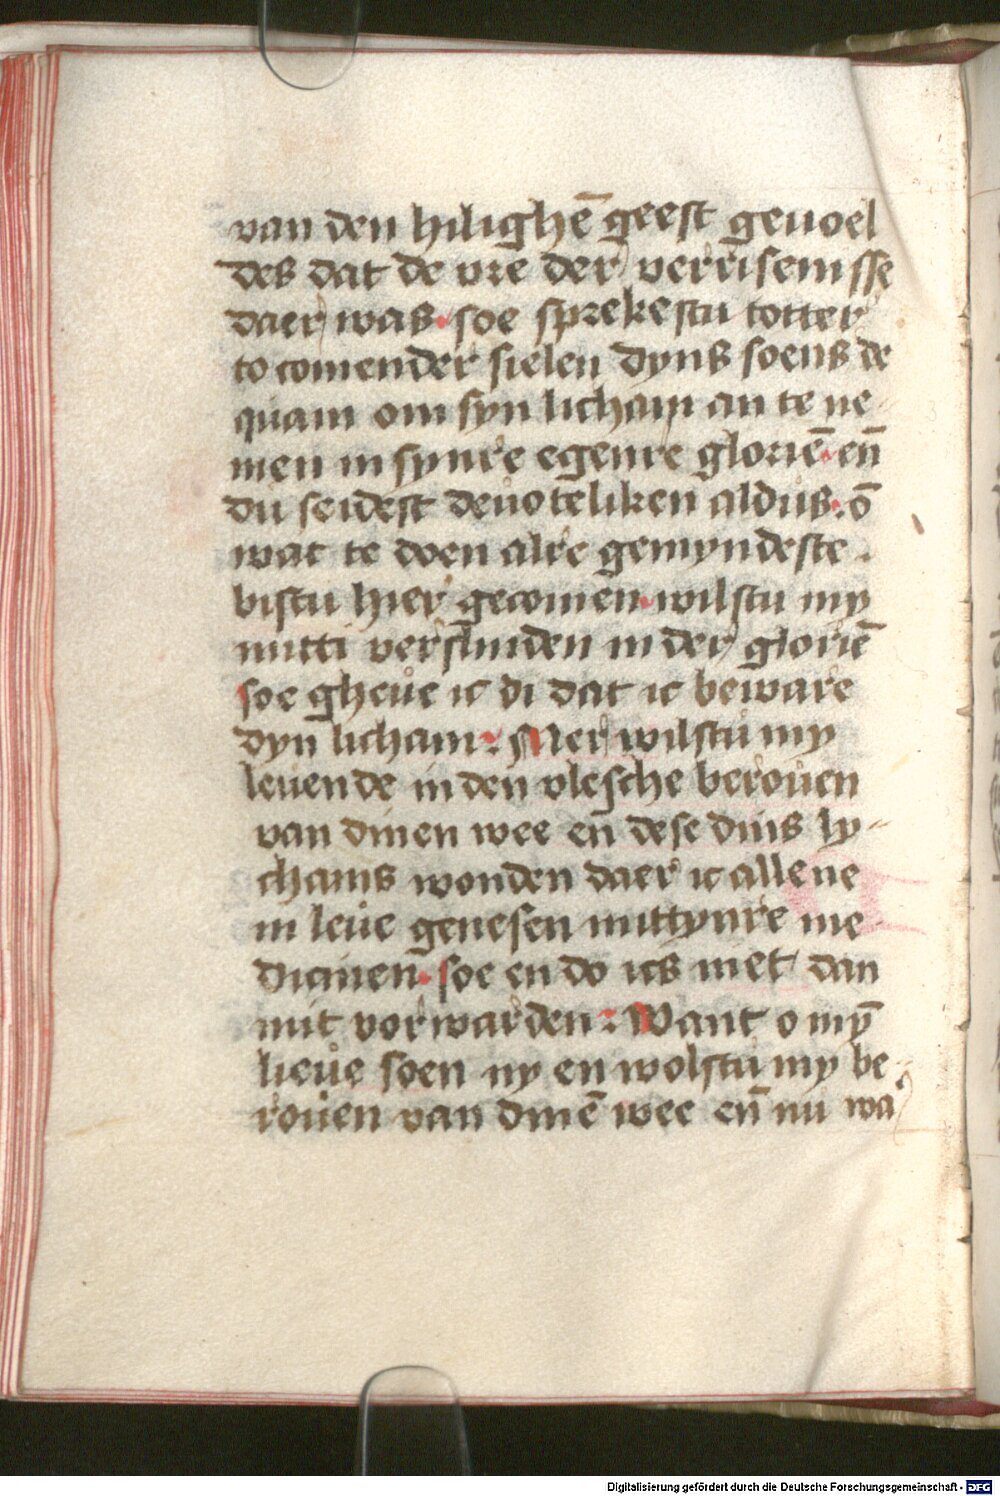 van den hilighē geest geuoel
des dat de vre der verrisenisse
daer was. soe sprekestu totter
to comender sielen dyns soens de
quam om syn licham an te ne
men in synre egenre gloriē. eñ
du seidest deuoteliken aldus. ō
wat te doen alre gemyndeste
bistu hier gecomen. wilstu my
mitti verslinden in der gloriē
soe gheue ic di dat ic beware
dyn licham: Mer wilstu my
leuende in den vlesche berouen
van dinen wee eñ dese dins ly-
chams wonden daer ic allene
in leue genesen mittynre me
dicinen. soe en do ics niet dan
mit vorwarden: Want o mȳ
lieue soen ny en wolstu my be
rouen van dinē wee eñ nu wa
Digitalisierung gefördert durch die Deutsche Forschungsgemeinschaft - DFG